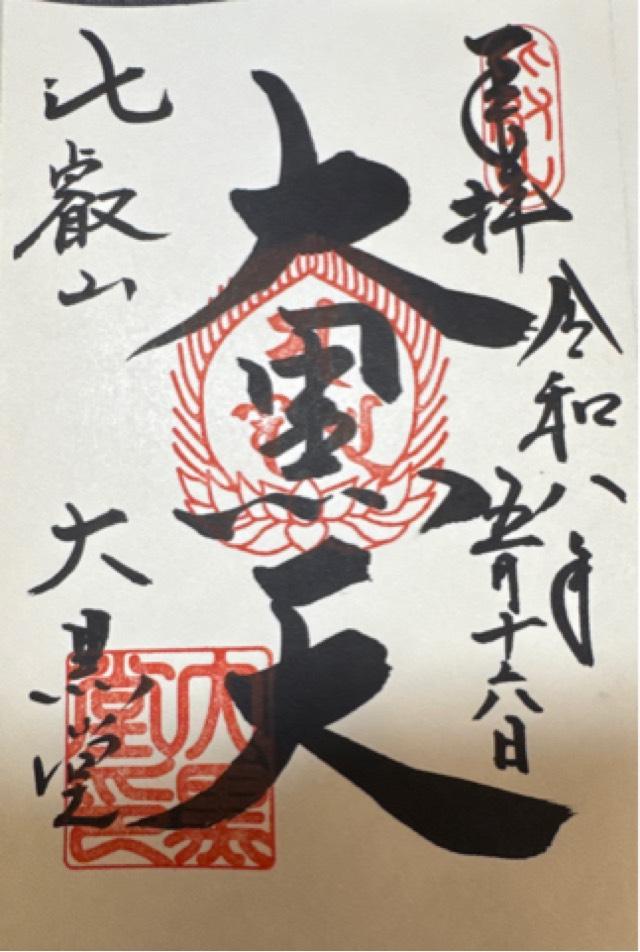 奉拝
令和八年
五月十六日
大黒天
比叡山
大黒堂
大黒
堂印